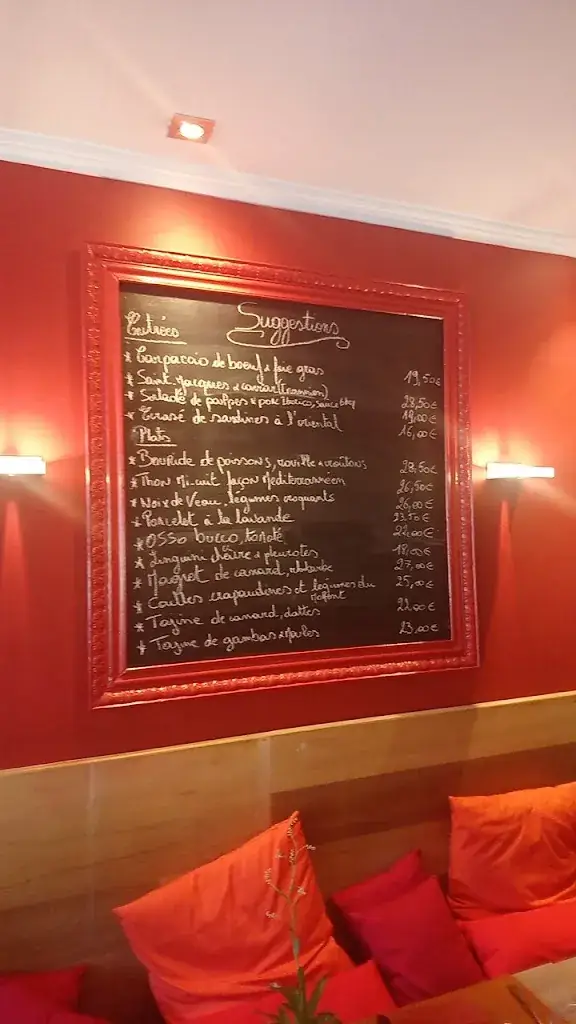 Suggestions
Entrées
* Carpaccio de boeuf & foie gras 19,50€
* Saint Jacques & caviar 28,50€
* Salade de poulpes & porc Iberico, sauce 19,00€
* Ecrasé de sardines à l'oriental 16,00€
Plats
* Bourride de poissons, rouille & croûtons 28,50€
* Thon Mi-cuit façon Mediterranéen 26,50€
* Noix de Veau, légumes croquants 26,00€
* Porcelet à la lavande 23,50€
* OSSO bucco, tomaté 22,00€
* Linguini chèvre & pleurotes 18,00€
* Magret de canard, rhubarbe 27,00€
* Cailles crapaudines et légumes du 25,00€
moment
* Tajine de canard, dattes 22,00€
* Tajine de gambas & Moules 23,00€